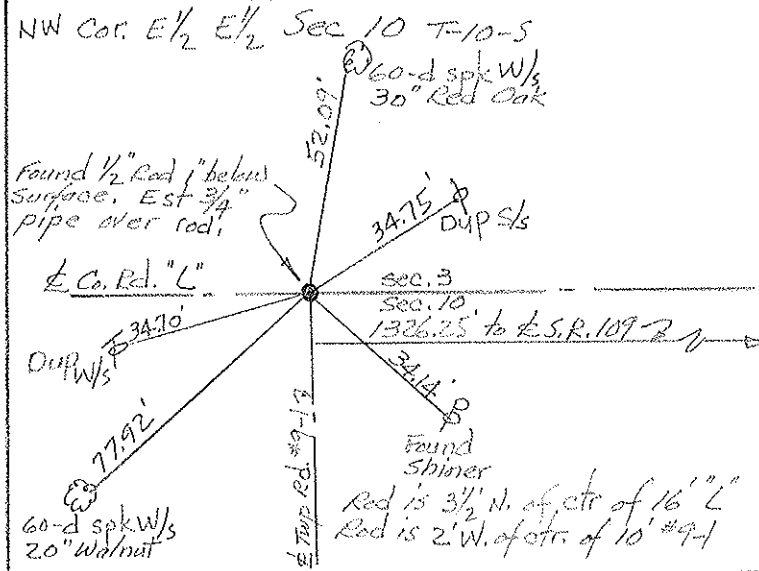 NW Cor. E½ E½ Sec 10 T-10-S
60-d spk W/s
30" Red Oak
52.09'
Found ½" Rod 1" below
Surface. Est ¾"
pipe over rod.
34.75'
Dup S/s
℄ Co. Rd. "L"
Sec. 3
Sec. 10
1326.25' to ℄ S.R. 109
34.70'
Dup W/s
34.14'
77.92'
Found
Shiner
℄ Twp Rd. #9-1
60-d spk W/s
20" Walnut
Rod is 3½' N. of ctr of 16' "L"
Rod is 2' W. of ctr. of 10' #9-1